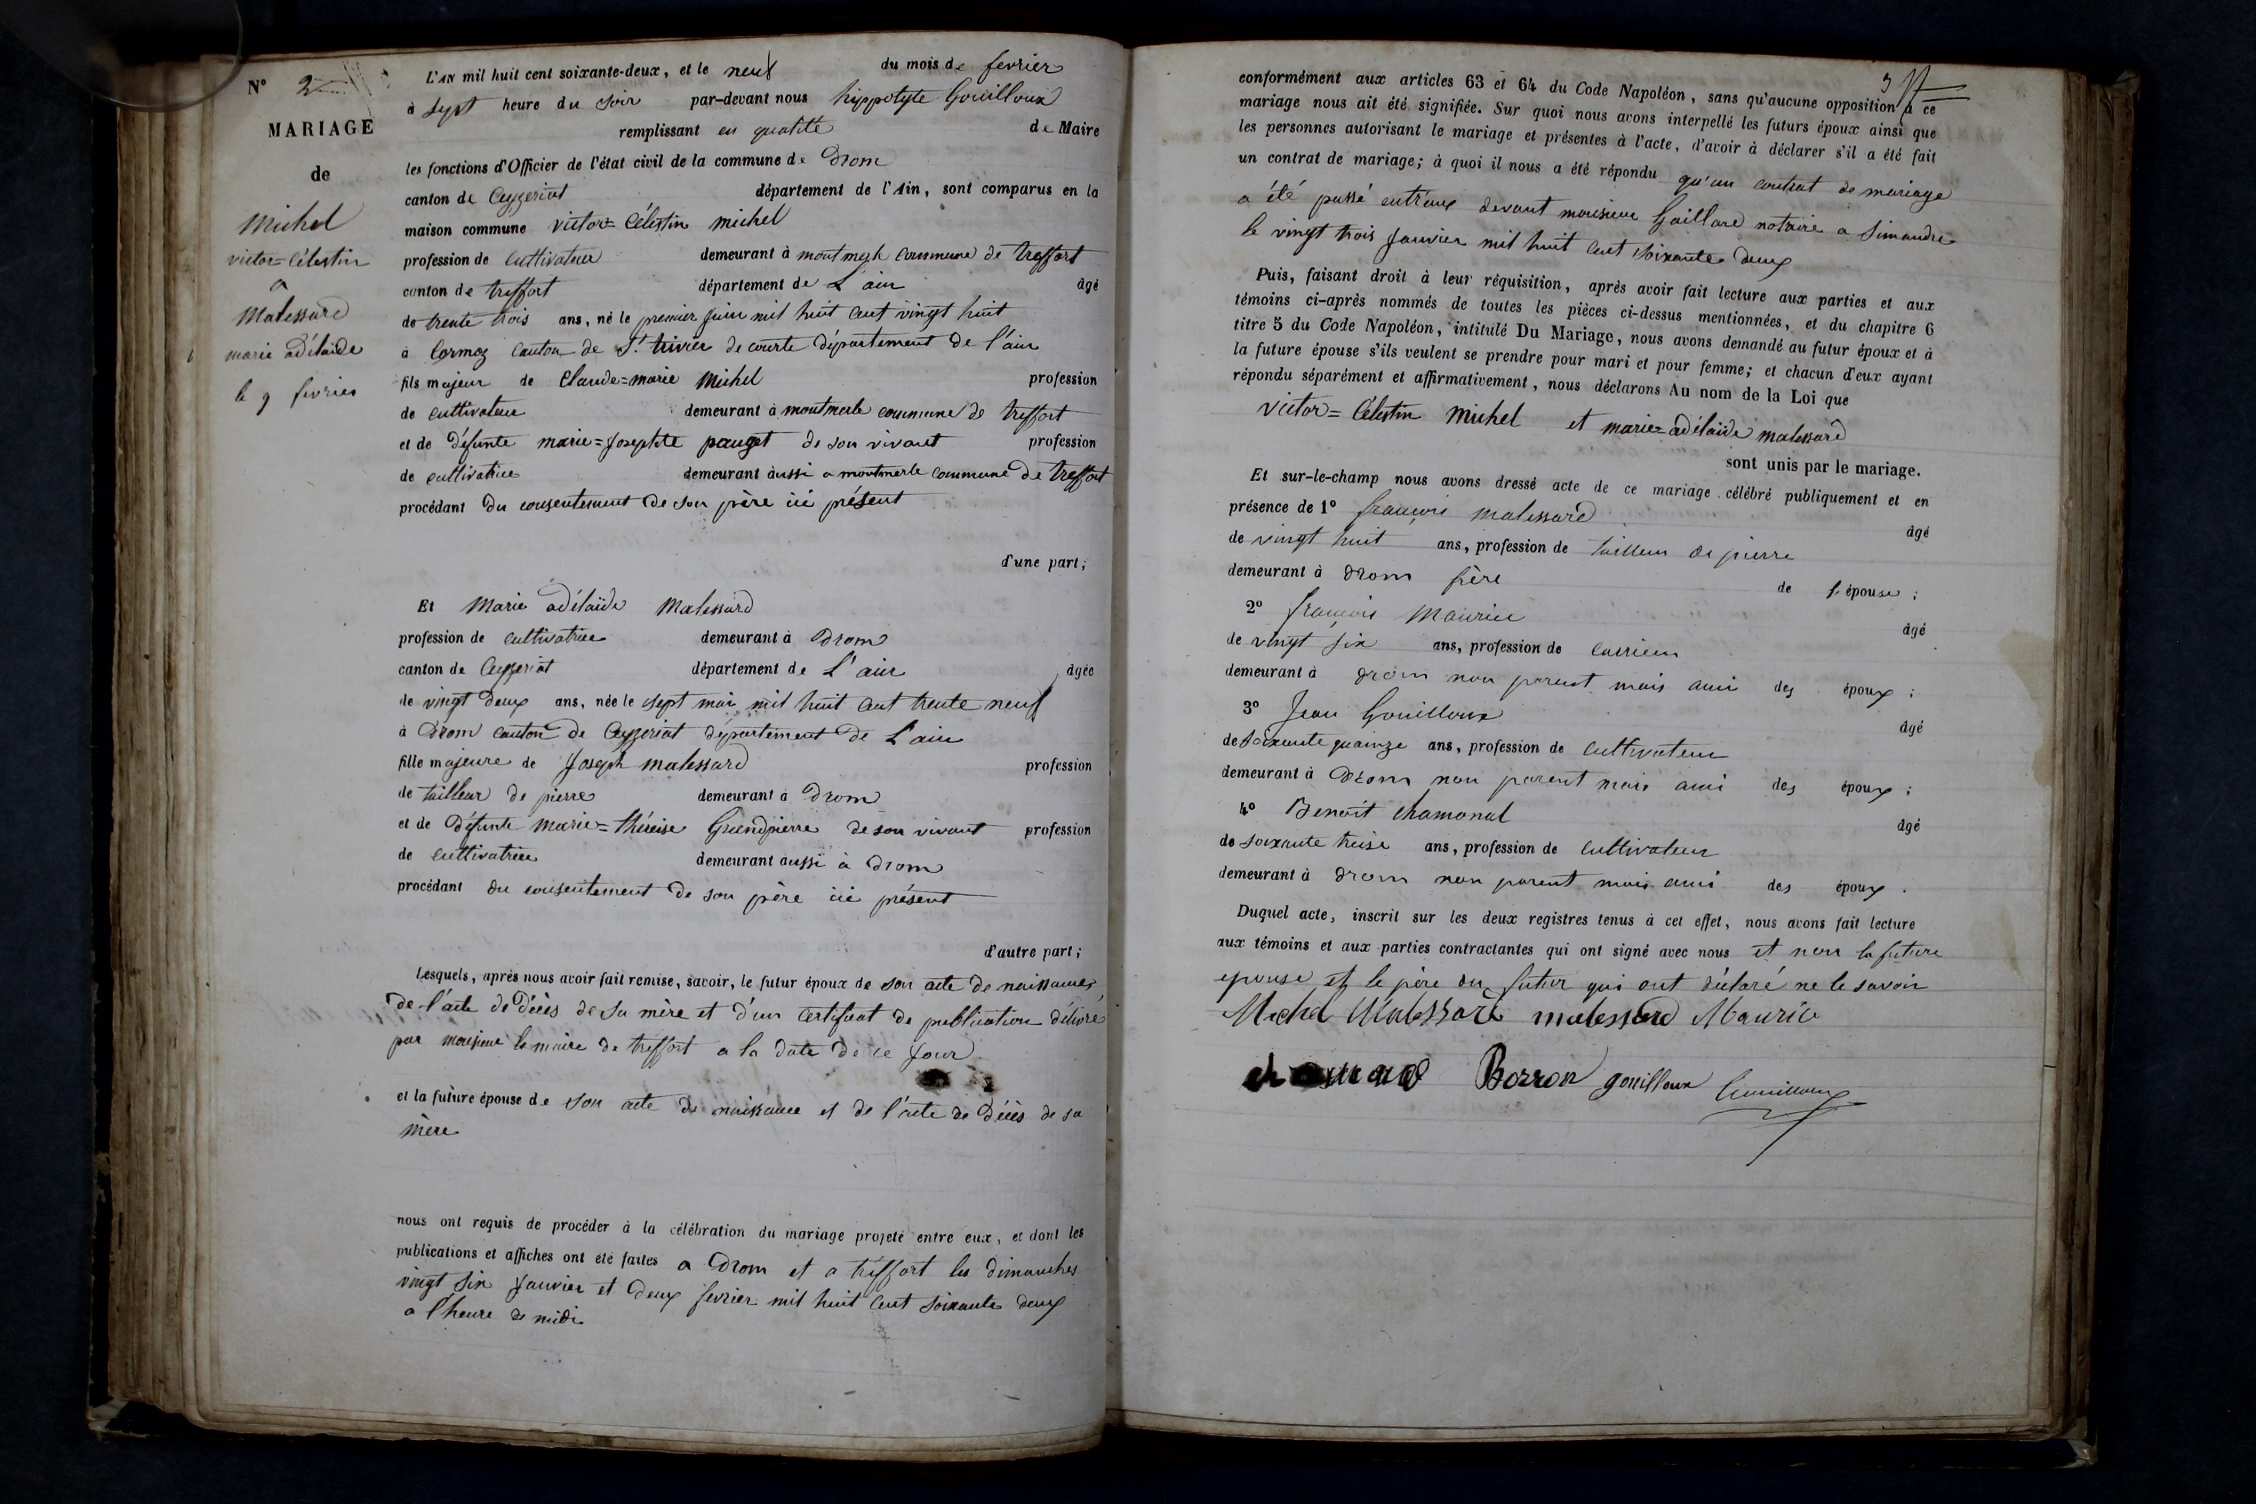 N° 2
MARIAGE
de
Michel
victor=Célestin
à
Malessard
marie adélaïde
le 9 fevrier
L'AN mil huit cent soixante-deux, et le neuf du mois de fevrier
à sept heure du soir par-devant nous hippolyte Gouilloux
remplissant en qualité de Maire
les fonctions d'Officier de l'état civil de la commune de Drom
canton de Ceyzeriat département de l'Ain, sont comparus en la
maison commune victor=Célestin michel
profession de cultivateur demeurant à commune de treffort
canton de treffort département de L'ain âgé
de trente trois ans, né le premier juin mil huit cent vingt huit
à Cormoz canton de St. trivier de courte département de l'ain
fils majeur de Claude=marie Michel profession
de cultivateur demeurant à montmerle commune de treffort
et de défunte marie=Josephte pauget de son vivant profession
de cultivatrice demeurant aussi a montmerle commune de treffort
procédant du consentement de son père ici présent
d'une part;
Et Marie adélaïde Malessard
profession de cultivatrice demeurant à Drom
canton de Ceyzeriat département de L'ain âgée
de vingt deux ans, née le sept mai mil huit cent trente neuf
à Drom canton de Ceyzeriat département de L'ain
fille majeure de Joseph malessard profession
de tailleur de pierre demeurant à Drom
et de défunte Marie=théreise Grandpierre de son vivant profession
de cultivatrice demeurant aussi à Drom
procédant du consentement de son père ici présent
d'autre part;
Lesquels, après nous avoir fait remise, savoir, le futur époux de son acte de naissance,
de l'acte de décès de sa mère et d'un certificat de publication délivré
par monsieur le maire de treffort a la date de ce jour
et la future épouse de son acte de naissance et de l'acte de décès de sa
mère
nous ont requis de procéder à la célébration du mariage projeté entre eux, et dont les
publications et affiches ont été faites a Drom et a treffort les dimanches
vingt six janvier et deux fevrier mil huit cent soixante deux
a l'heure de midi
3
conformément aux articles 63 et 64 du Code Napoléon, sans qu'aucune opposition à ce
mariage nous ait été signifiée. Sur quoi nous avons interpellé les futurs époux ainsi que
les personnes autorisant le mariage et présentes à l'acte, d'avoir à déclarer s'il a été fait
un contrat de mariage; à quoi il nous a été répondu qu'un contrat de mariage
a été passé entr'eux devant monsieur Gaillard notaire a Simandre
le vingt trois janvier mil huit cent soixante deux
Puis, faisant droit à leur réquisition, après avoir fait lecture aux parties et aux
témoins ci-après nommés de toutes les pièces ci-dessus mentionnées, et du chapitre 6
titre 5 du Code Napoléon, intitulé Du Mariage, nous avons demandé au futur époux et à
la future épouse s'ils veulent se prendre pour mari et pour femme; et chacun d'eux ayant
répondu séparément et affirmativement, nous déclarons Au nom de la Loi que
victor=Célestin Michel et marie=adélaïde malessard
sont unis par le mariage.
Et sur-le-champ nous avons dressé acte de ce mariage célébré publiquement et en
présence de 1° françois malessard âgé
de vingt huit ans, profession de tailleur de pierre
demeurant à Drom frère de l'épouse;
2° françois Maurice âgé
de vingt six ans, profession de carrieur
demeurant à Drom non parent mais ami des époux;
3° Jean Gouilloux âgé
de soixante quainze ans, profession de cultivateur
demeurant à Drom non parent mais ami des époux;
4° Benoit Chamonal âgé
de soixante treise ans, profession de cultivateur
demeurant à Drom non parent mais ami des époux.
Duquel acte, inscrit sur les deux registres tenus à cet effet, nous avons fait lecture
aux témoins et aux parties contractantes qui ont signé avec nous et non la future
epouse et le père du futur qui ont déclaré ne le savoir
Michel Malessard malessard Maurice
Bozzon gouilloux Gouilloux